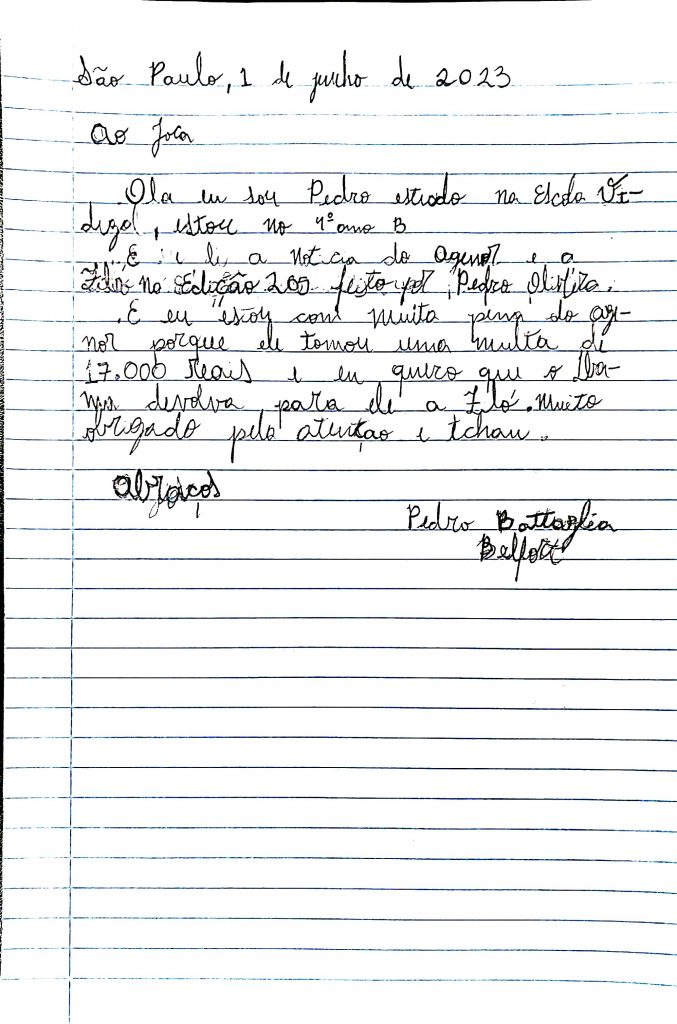 São Paulo, 1 de junho de 2023
Ao Joca
Ola eu sou Pedro estudo na Escola Vi-
digal, estou no 4º ano B
E e li a noticia do Agenor e a
na Edição 205 feito por Pedro Oliveira.
E eu estou com muita pena do age-
nor porque ele tomou uma multa de
17.000 reais e eu quero que o Iba-
ma devolva para ele a Filó. Muito
obrigado pela atenção e tchau.
Abraços
Pedro Battaglia
Belfort